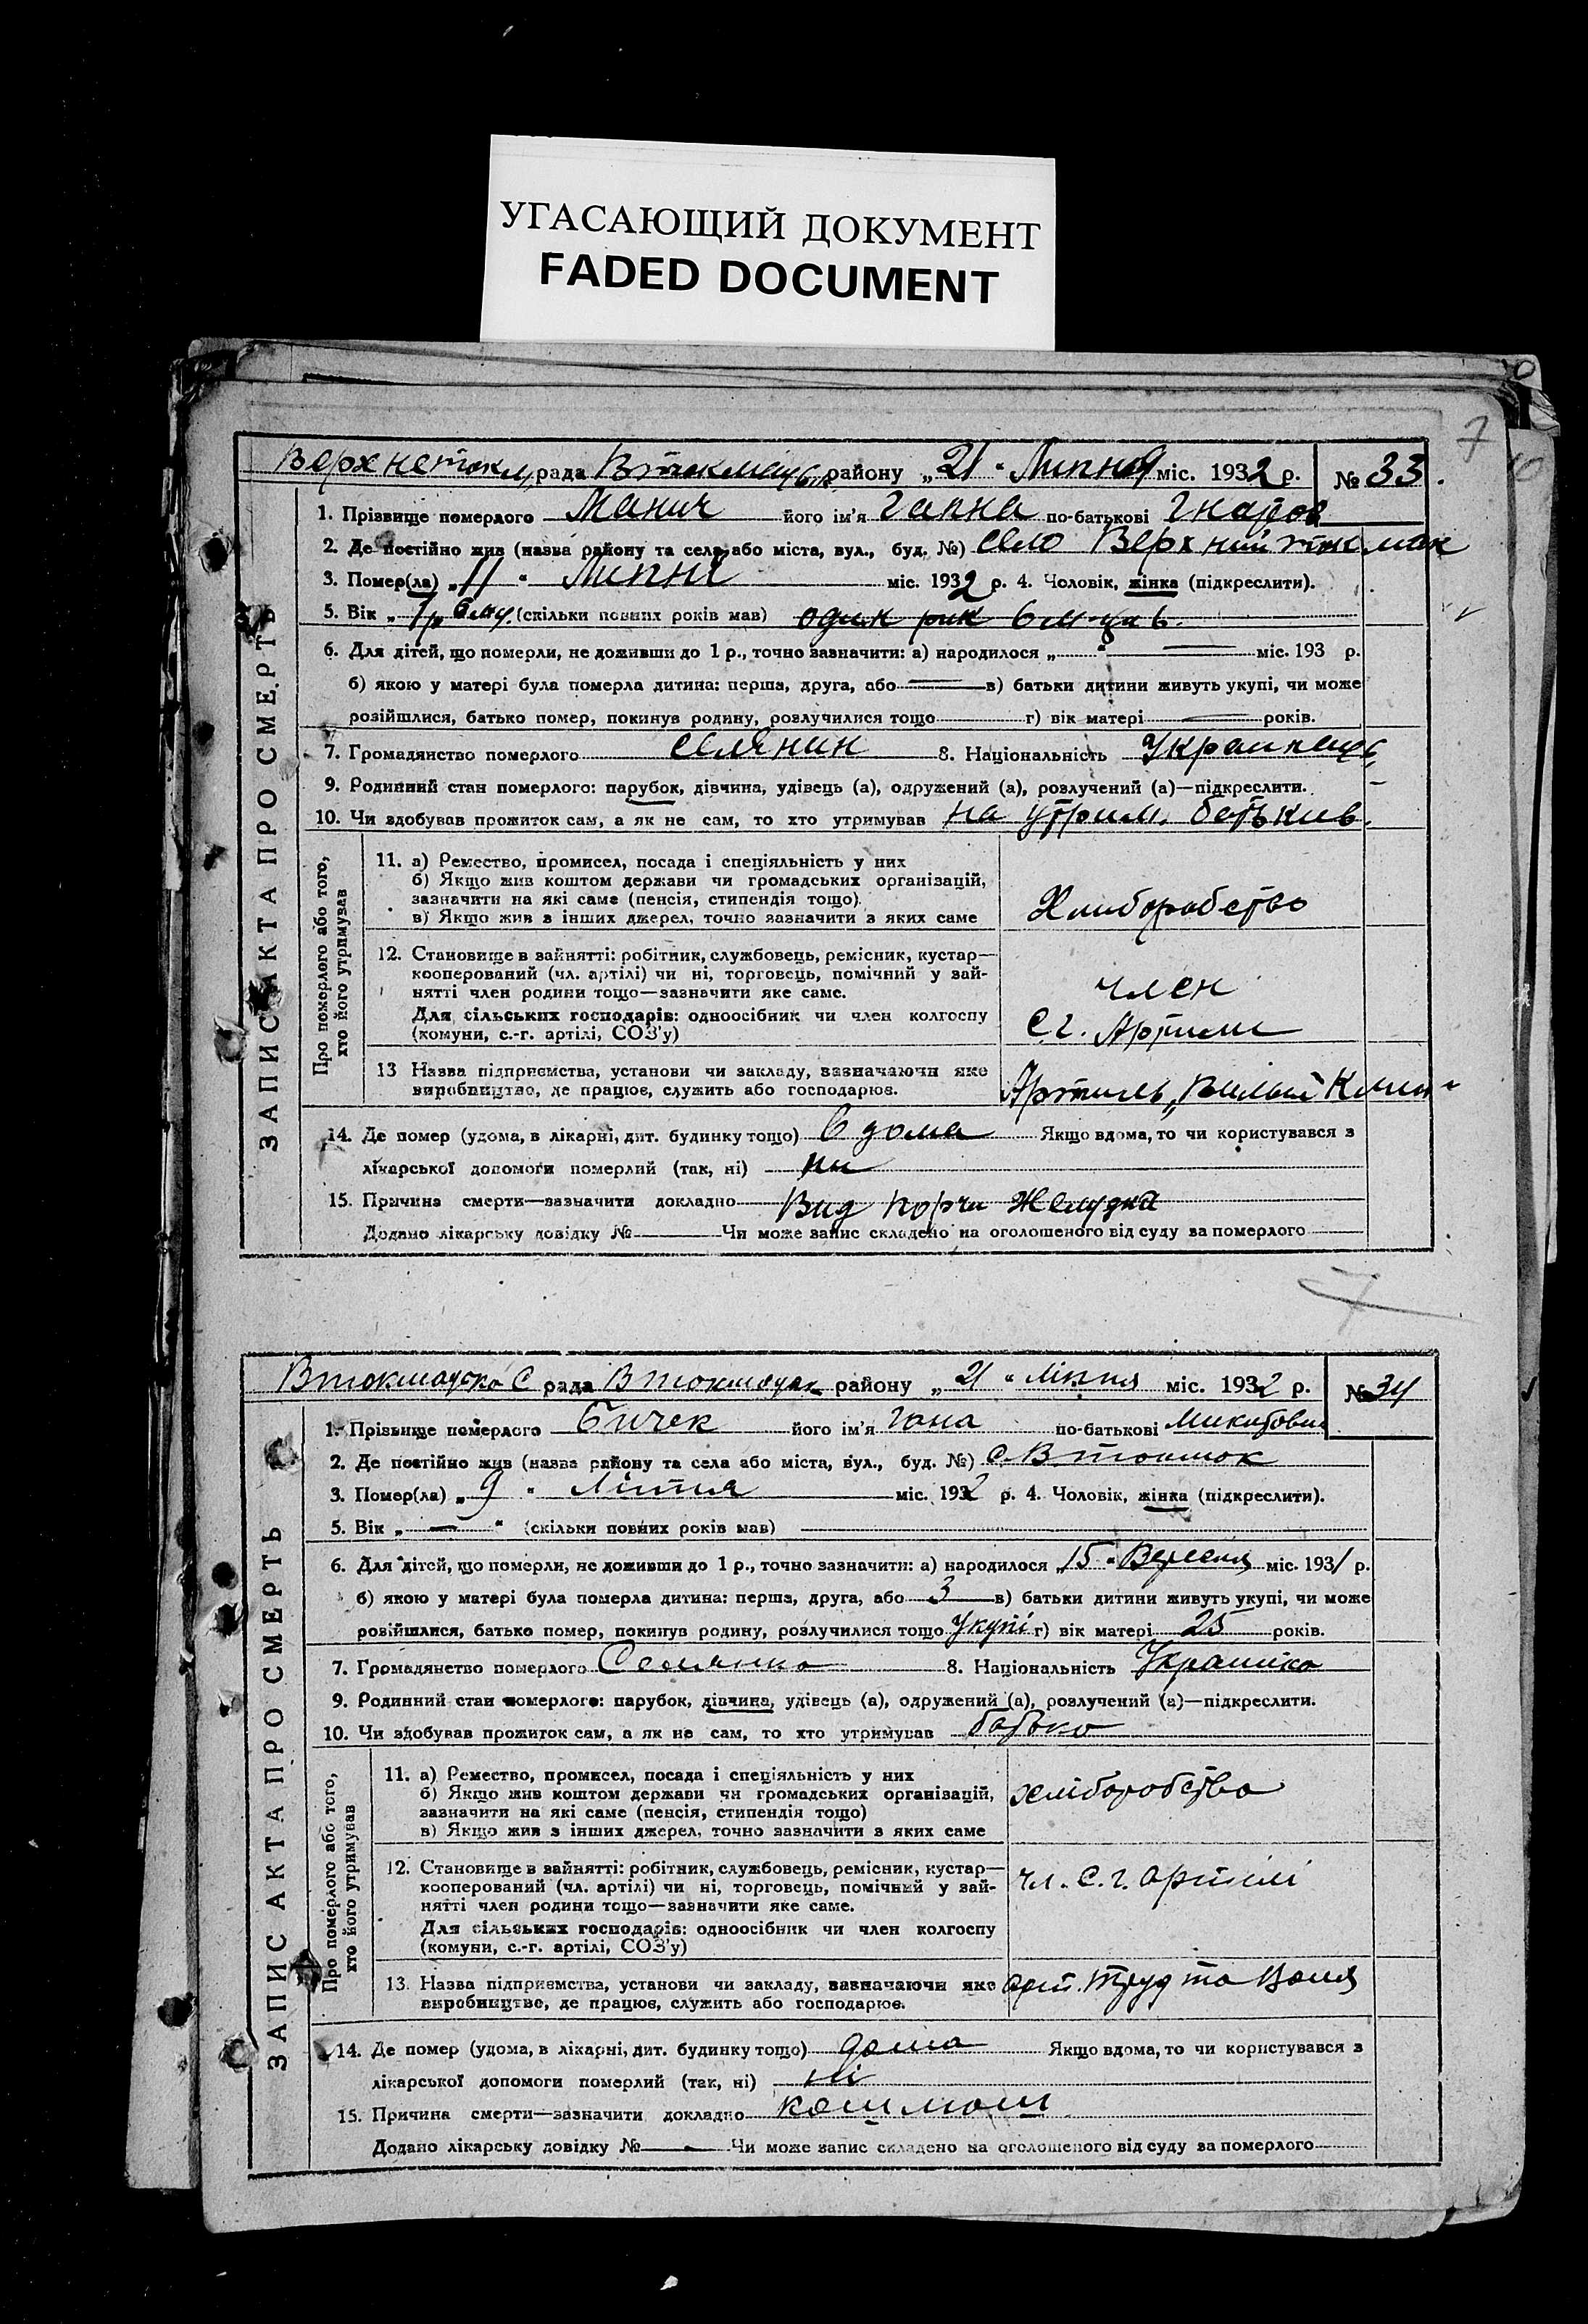 УГАСАЮЩИЙ ДОКУМЕНТ
FADED DOCUMENT
7
рада району „21“ Липня міс. 1932 р. № 33.
1. Прізвище померлого Манич його ім'я Гапка по-батькові
2. Де постійно жив (назва району та села або міста, вул., буд. №) село Верхний токмак
3. Помер(ла) „11“ Липня міс. 1932 р. 4. Чоловік, жінка (підкреслити).
5. Вік „1р 6 м. (скільки повних років мав) один рик 6 м-цив.
6. Для дітей, що померли, не доживши до 1 р., точно зазначити: а) народилося „ “ міс. 193 р.
б) якою у матері була померла дитина: перша, друга, або в) батьки дитини живуть укупі, чи може
розійшлися, батько помер, покинув родину, розлучилися тощо г) вік матері років.
7. Громадянство померлого селянин 8. Національність Украинець
9. Родинний стан померлого: парубок, дівчина, удівець (а), одружений (а), розлучений (а)—підкреслити.
10. Чи здобував прожиток сам, а як не сам, то хто утримував на утрим. батькив.
ЗАПИС АКТА ПРО СМЕРТЬ
Про померлого або того,
хто його утримував
11. а) Ремество, промисел, посада і спеціяльність у них
б) Якщо жив коштом держави чи громадських організацій,
зазначити на які саме (пенсія, стипендія тощо)
в) Якщо жив з інших джерел, точно зазначити з яких саме
Хлиборобство
12. Становище в зайнятті: робітник, службовець, ремісник, кустар—
кооперований (чл. артілі) чи ні, торговець, помічний у зай-
нятті член родини тощо—зазначити яке саме.
Для сільських господарів: одноосібник чи член колгоспу
(комуни, с.-г. артілі, СОЗ'у)
член
С.г. Артили
13 Назва підприємства, установи чи закладу, зазначаючи яке
виробництво, де працює, служить або господарює.
Артиль
14. Де помер (удома, в лікарні, дит. будинку тощо) в дома Якщо вдома, то чи користувався з
лікарської допомоги померлий (так, ні) ни
15. Причина смерти—зазначити докладно Вид порчи желудка
Додано лікарську довідку № Чи може запис складено на оголошеного від суду за померлого
7
рада району „21“ Ліпня міс. 1932 р. № 34
1. Прізвище померлого Бичек його ім'я по-батькові
2. Де постійно жив (назва району та села або міста, вул., буд. №) с. В токмок
3. Помер(ла) „9“ Ліпня міс. 1932 р. 4. Чоловік, жінка (підкреслити).
5. Вік „—“ (скільки повних років мав)
6. Для дітей, що померли, не доживши до 1 р., точно зазначити: а) народилося „15“ Вересня міс. 1931 р.
б) якою у матері була померла дитина: перша, друга, або 3 в) батьки дитини живуть укупі, чи може
розійшлися, батько помер, покинув родину, розлучилися тощо Укупі г) вік матері 25 років.
7. Громадянство померлого Селянка 8. Національність Украинка
9. Родинний стан померлого: парубок, дівчина, удівець (а), одружений (а), розлучений (а)—підкреслити.
10. Чи здобував прожиток сам, а як не сам, то хто утримував батько
ЗАПИС АКТА ПРО СМЕРТЬ
Про померлого або того,
хто його утримував
11. а) Ремество, промисел, посада і спеціяльність у них
б) Якщо жив коштом держави чи громадських організацій,
зазначити на які саме (пенсія, стипендія тощо)
в) Якщо жив з інших джерел, точно зазначити з яких саме
хліборобство
12. Становище в зайнятті: робітник, службовець, ремісник, кустар—
кооперований (чл. артілі) чи ні, торговець, помічний у зай-
нятті член родини тощо—зазначити яке саме.
Для сільських господарів: одноосібник чи член колгоспу
(комуни, с.-г. артілі, СОЗ'у)
чл. с.г. артілі
13. Назва підприємства, установи чи закладу, зазначаючи яке
виробництво, де працює, служить або господарює.
арт. Труд та Воля
14. Де помер (удома, в лікарні, дит. будинку тощо) дома Якщо вдома, то чи користувався з
лікарської допомоги померлий (так, ні) ні
15. Причина смерти—зазначити докладно
Додано лікарську довідку № — Чи може запис складено на оголошеного від суду за померлого